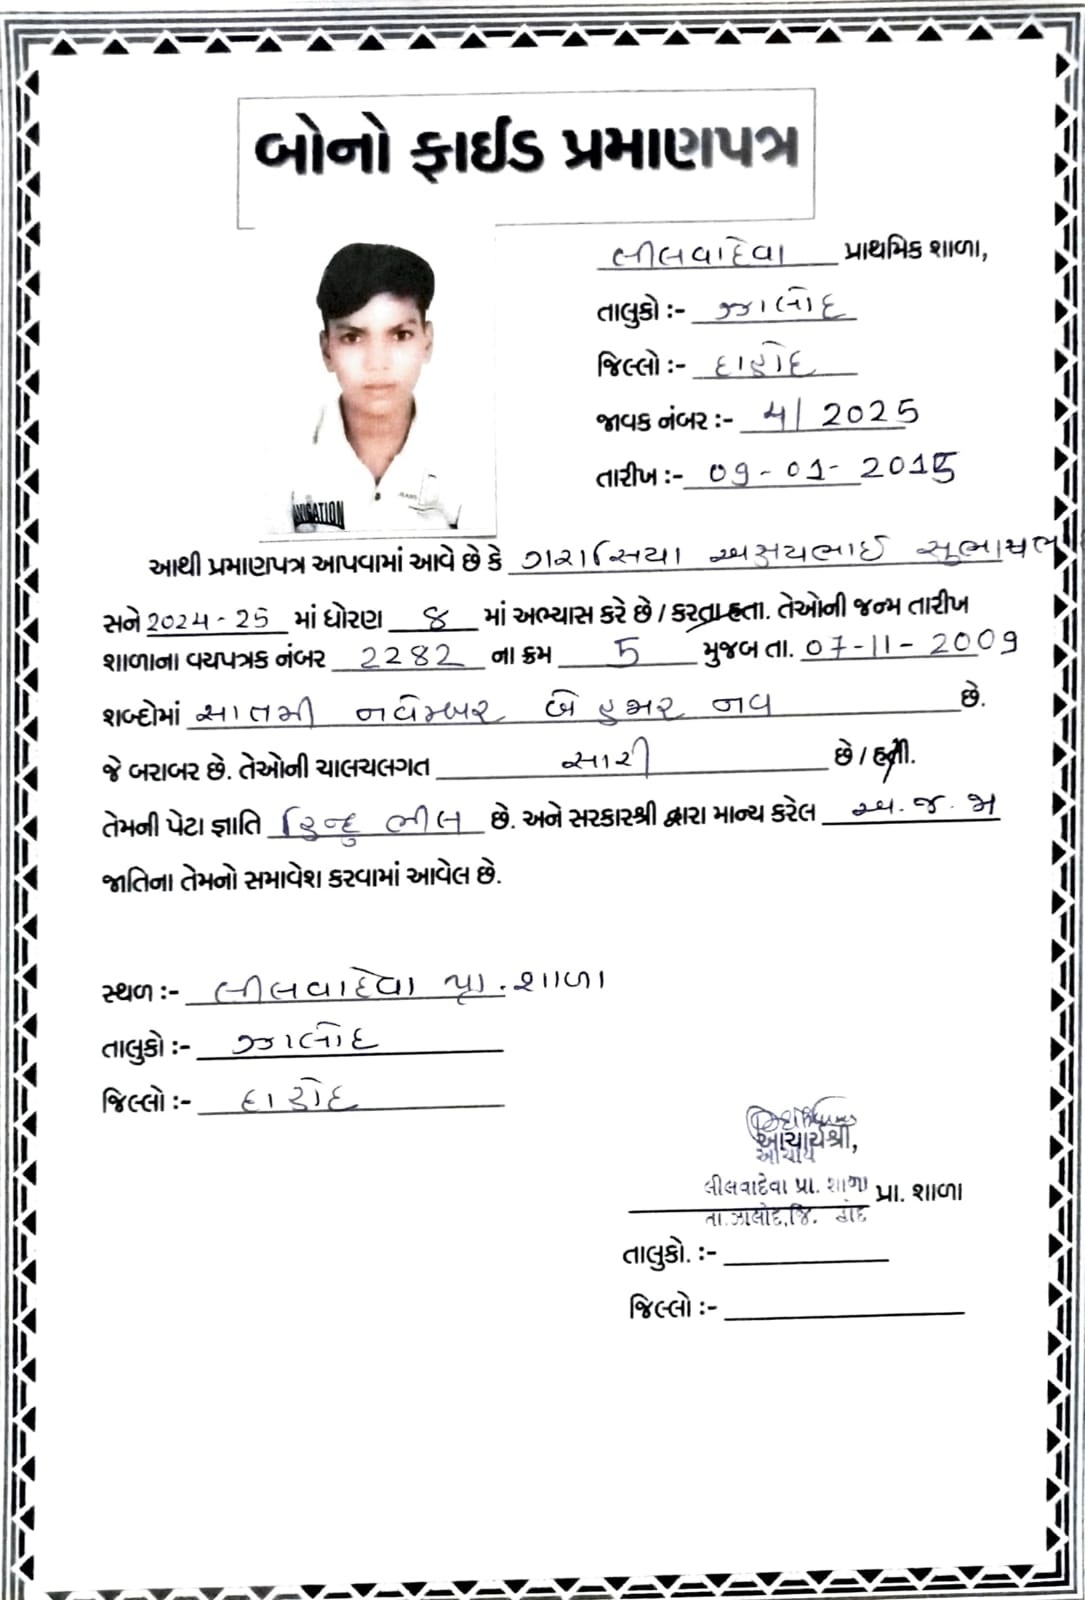 બોનો ફાઈડ પ્રમાણપત્ર
લીલવાદેવા પ્રાથમિક શાળા,
તાલુકો :- ઝાલોદ
જિલ્લો :- દાહોદ
જાવક નંબર :- 4/2025
તારીખ :- 09-01-2015
AVIGATION
આથી પ્રમાણપત્ર આપવામાં આવે છે કે ગરાસિયા અક્ષયભાઈ
સને 2024-25 માં ધોરણ 8 માં અભ્યાસ કરે છે / કરતા હતા. તેઓની જન્મ તારીખ
શાળાના વયપત્રક નંબર 2282 ના ક્રમ 5 મુજબ તા. 07-11-2009
શબ્દોમાં સાતમી નવેમ્બર બે હજાર નવ છે.
જે બરાબર છે. તેઓની ચાલચલગત સારી છે / હતી.
તેમની પેટા જ્ઞાતિ હિન્દુ ભીલ છે. અને સરકારશ્રી દ્વારા માન્ય કરેલ અ.જ.જા
જાતિના તેમનો સમાવેશ કરવામાં આવેલ છે.
સ્થળ :- લીલવાદેવા પ્રા. શાળા
તાલુકો :- ઝાલોદ
જિલ્લો :- દાહોદ
આચાર્યશ્રી,
આચાર્ય
લીલવાદેવા પ્રા. શાળા પ્રા. શાળા
તા.ઝાલોદ,જિ.
તાલુકો. :-
જિલ્લો :-